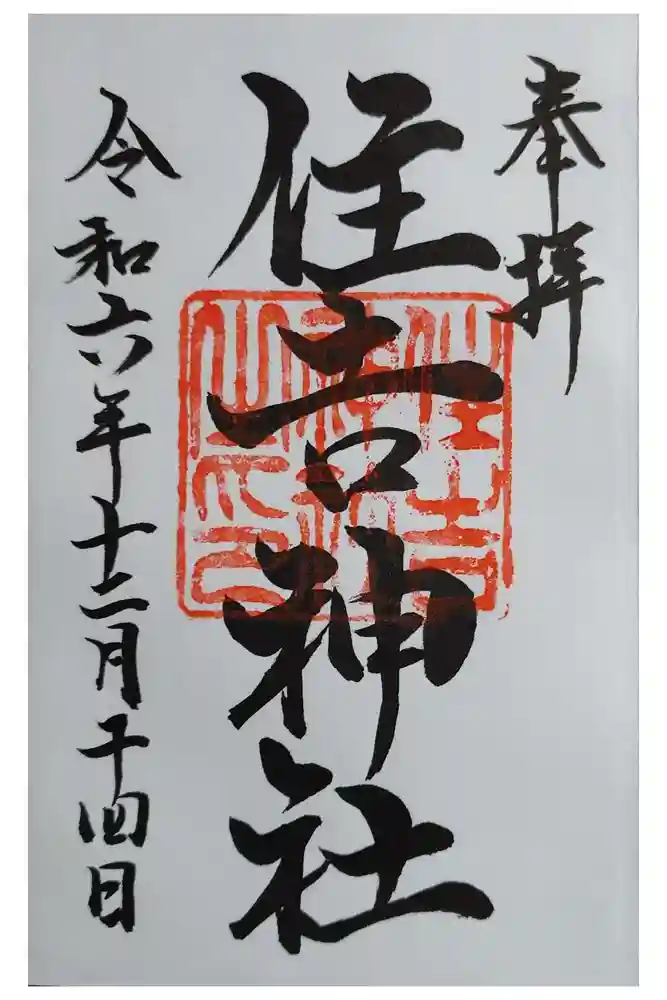 奉拝
住吉神社
住吉神社之印
令和六年十二月十四日